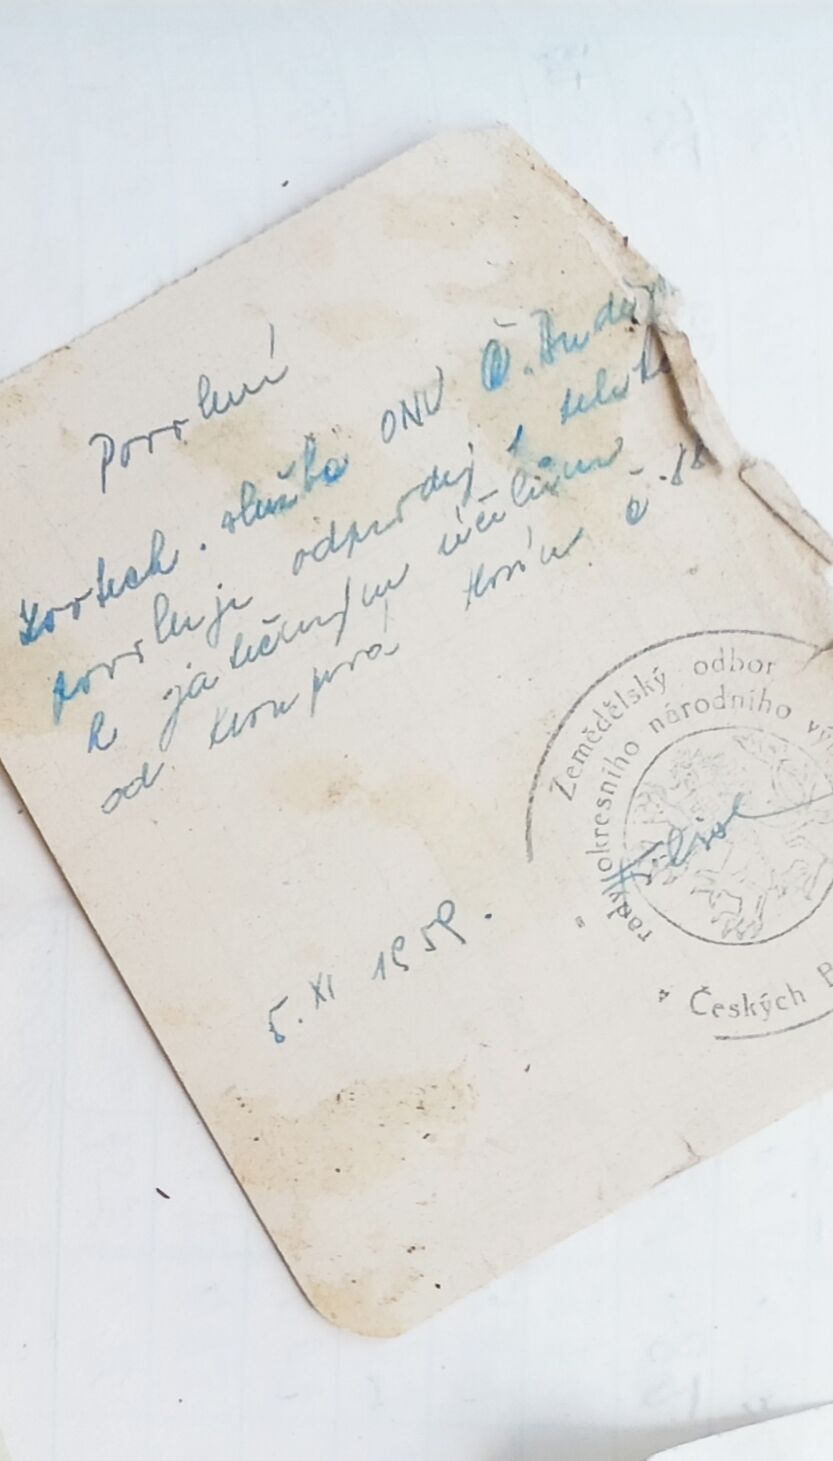 Povolení
Zootech. služba ONV Č. Buděj
povoluje odprodej 1 telete
k jatečným účelům
od Kroupová Hosín č. 88
5. XI 1959.
Zemědělský odbor
rady okresního národního vý
Českých B